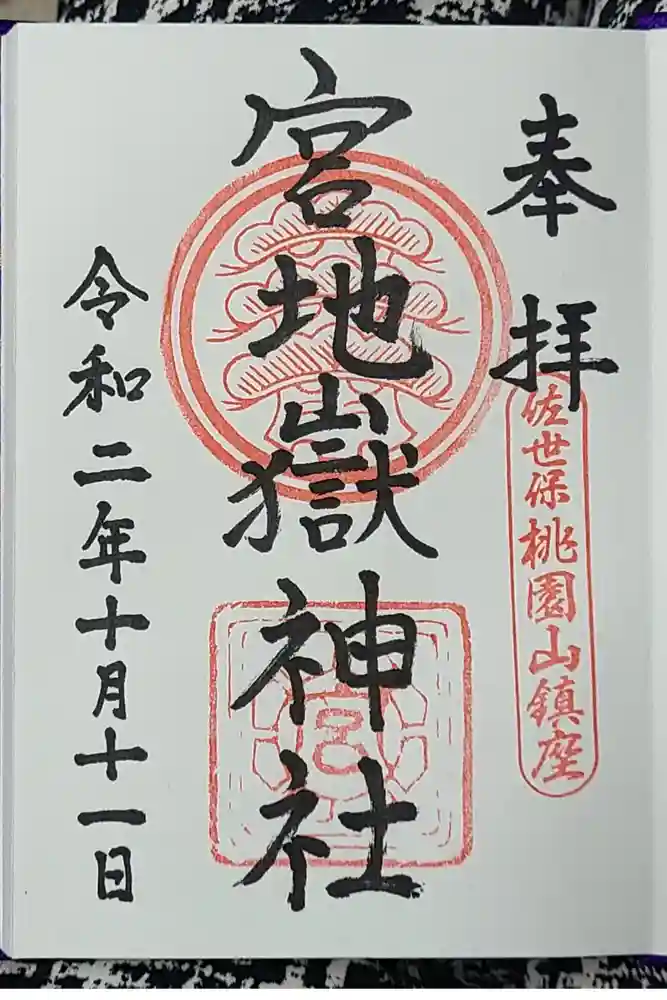 奉拝
佐世保桃園山鎮座
宮地嶽神社
令和二年十月十一日
宮